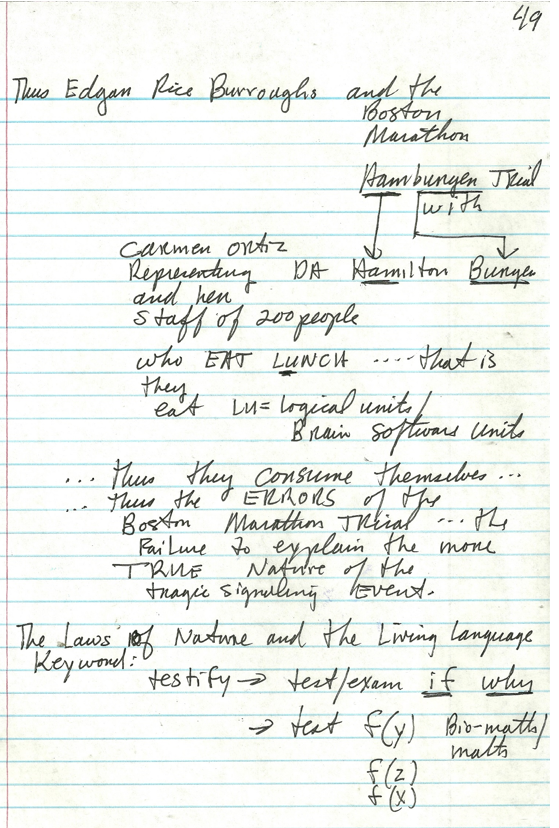 49
Thus Edgar Rice Burroughs and the
Boston
Marathon
Hamburger Trial
with
Carmen Ortiz
Representing DA Hamilton Burger
and her
Staff of 200 people
who EAT LUNCH ..... that is
they
eat LU = Logical units/
Brain software units
... thus they consume themselves ...
... thus the ERRORS of the
Boston Marathon TRial ... the
Failure to explain the more
TRUE Nature of the
tragic signaling EVENT.
The Laws of Nature and the Living Language
Keyword:
testify → test/exam if why
→ test f(y) Bio-math/
maths
f(z)
f(x)